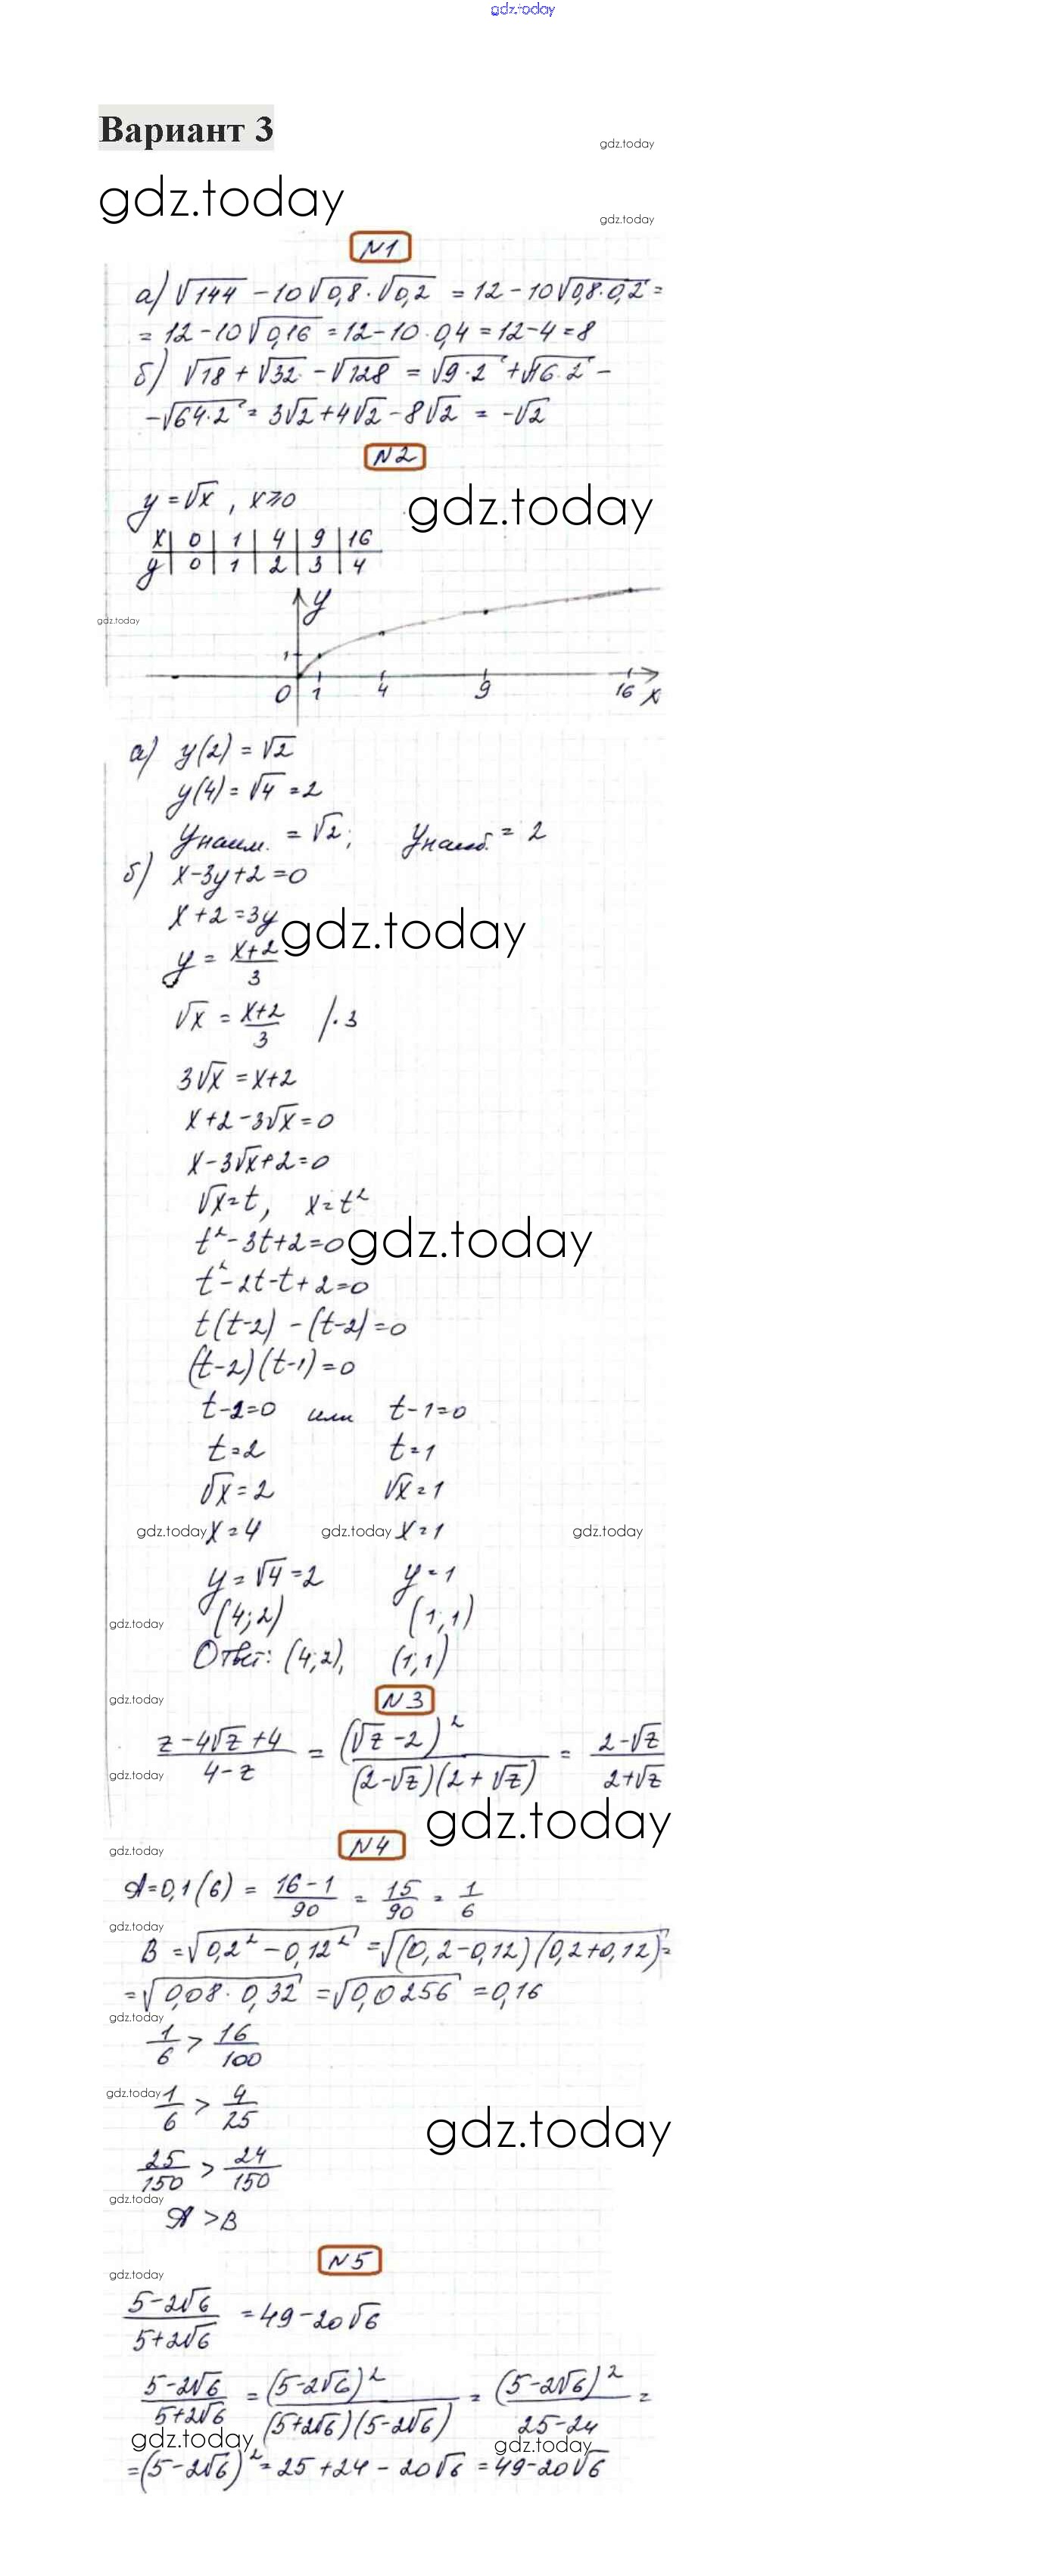 gdz.today
Вариант 3
gdz.today
gdz.today
gdz.today
N1
а) √144 - 10√0,8 · √0,2 = 12 - 10√0,8·0,2 =
= 12 - 10√0,16 = 12 - 10 · 0,4 = 12 - 4 = 8
б) √18 + √32 - √128 = √9·2 + √16·2 -
- √64·2 = 3√2 + 4√2 - 8√2 = -√2
N2
y = √x , x ≥ 0
gdz.today
x | 0 | 1 | 4 | 9 | 16
y | 0 | 1 | 2 | 3 | 4
y
gdz.today
1
0 1 4 9 16 x
а) y(2) = √2
y(4) = √4 = 2
yнаим. = √2; yнаиб. = 2
б) x - 3y + 2 = 0
x + 2 = 3y
gdz.today
y = (x+2)/3
√x = (x+2)/3 /·3
3√x = x+2
x + 2 - 3√x = 0
x - 3√x + 2 = 0
√x = t, x = t²
t² - 3t + 2 = 0
gdz.today
t² - 2t - t + 2 = 0
t(t-2) - (t-2) = 0
(t-2)(t-1) = 0
t-2=0 или t-1=0
t=2 t=1
√x = 2 √x = 1
gdz.today x = 4 gdz.today x = 1 gdz.today
y = √4 = 2 y = 1
gdz.today (4;2) (1;1)
Ответ: (4;2), (1;1)
gdz.today N3
(z - 4√z + 4)/(4 - z) = (√z - 2)²/((2-√z)(2+√z)) = (2-√z)/(2+√z)
gdz.today
gdz.today
gdz.today N4
A = 0,1(6) = (16-1)/90 = 15/90 = 1/6
gdz.today
B = √0,2² - 0,12² = √(0,2-0,12)(0,2+0,12) =
= √0,08 · 0,32 = √0,0256 = 0,16
gdz.today
1/6 > 16/100
gdz.today 1/6 > 4/25
gdz.today
25/150 > 24/150
gdz.today
A > B
N5
gdz.today
(5-2√6)/(5+2√6) = 49 - 20√6
(5-2√6)/(5+2√6) = (5-2√6)²/((5+2√6)(5-2√6)) = (5-2√6)²/(25-24) =
gdz.today gdz.today
= (5-2√6)² = 25 + 24 - 20√6 = 49 - 20√6